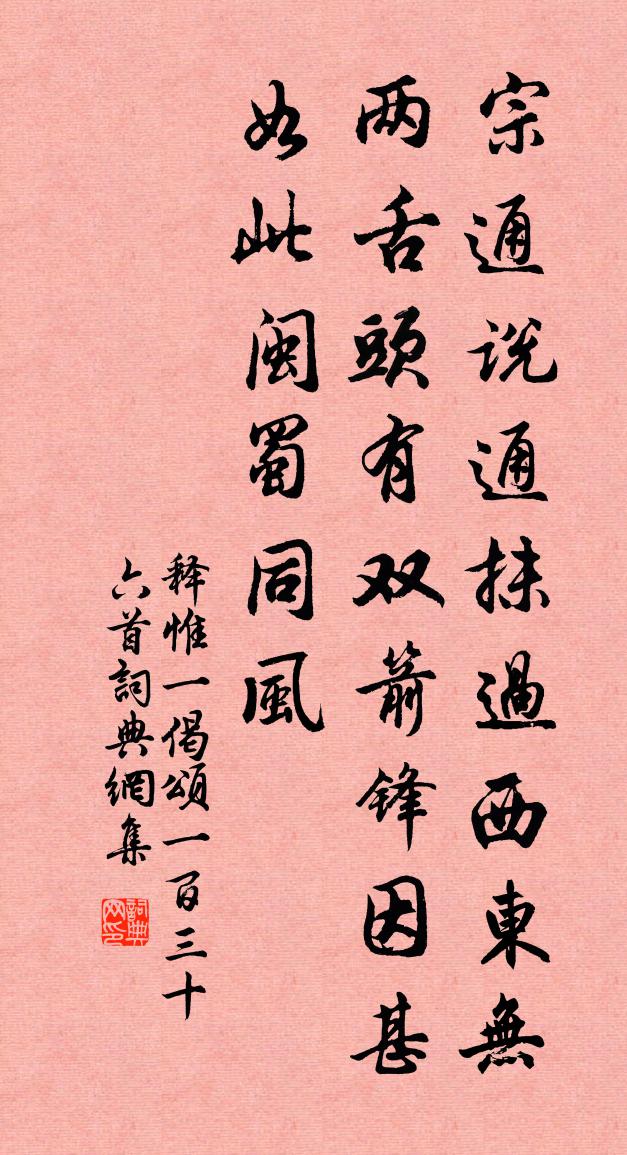 宗通说通抹過西東無
两舌頭有双箭锋因甚
如此闽蜀同風
释惟一偈頌一百三十
六首詞典網集
詞典网印